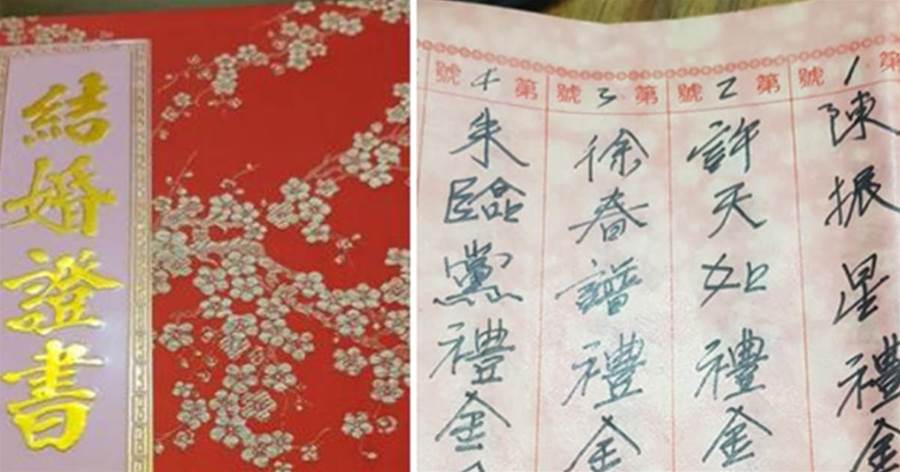 結婚證書
第1號
陳振星禮金
第2號
許天如禮金
第3號
徐春譜禮金
第4號
朱臨黨禮金